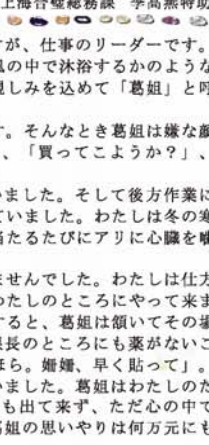 上海合璧総務課 李高燕特助
すが、仕事のリーダーです。
風の中で沐浴するかのような
親しみを込めて「葛姐」と呼
す。そんなとき葛姐は嫌な顔
、「買ってこようか？」、
いました。そして後方作業に
ていました。わたしは冬の寒
当たるたびにアリに心臓を噛
ませんでした。わたしは仕方
わたしのところにやって来ま
すると、葛姐は頷いてその場
課長のところにも薬がないこ
ほら。姗姗、早く貼って」。
いました。葛姐はわたしのた
も出て来ず、ただ心の中で
葛姐の思いやりは何万元にも